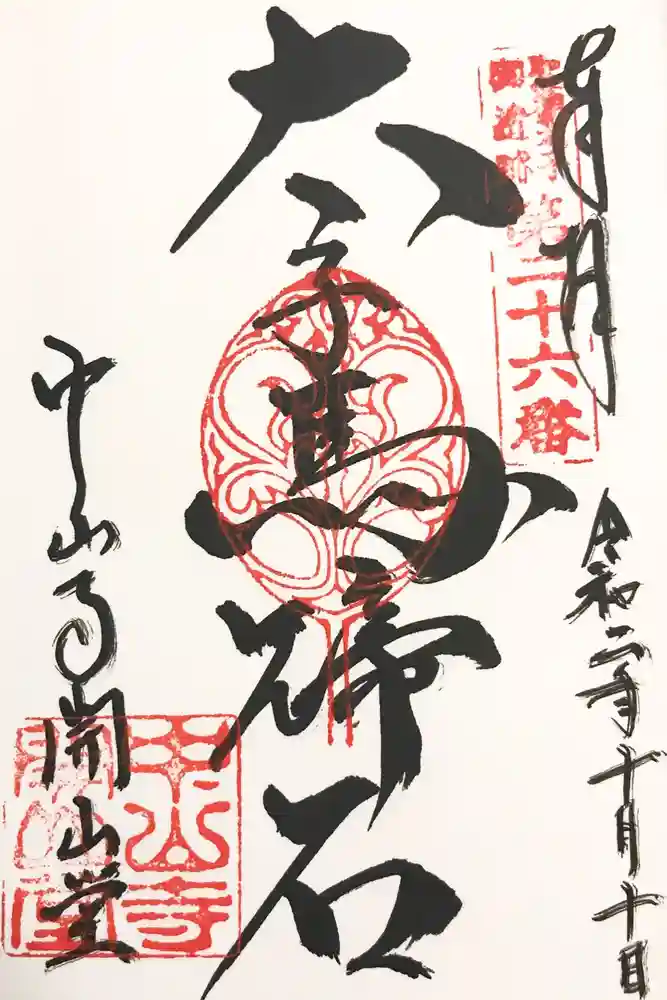 奉拝
第二十六番
令和二年十月十日
太子馬蹄石
中山寺開山堂
中山寺
開山堂